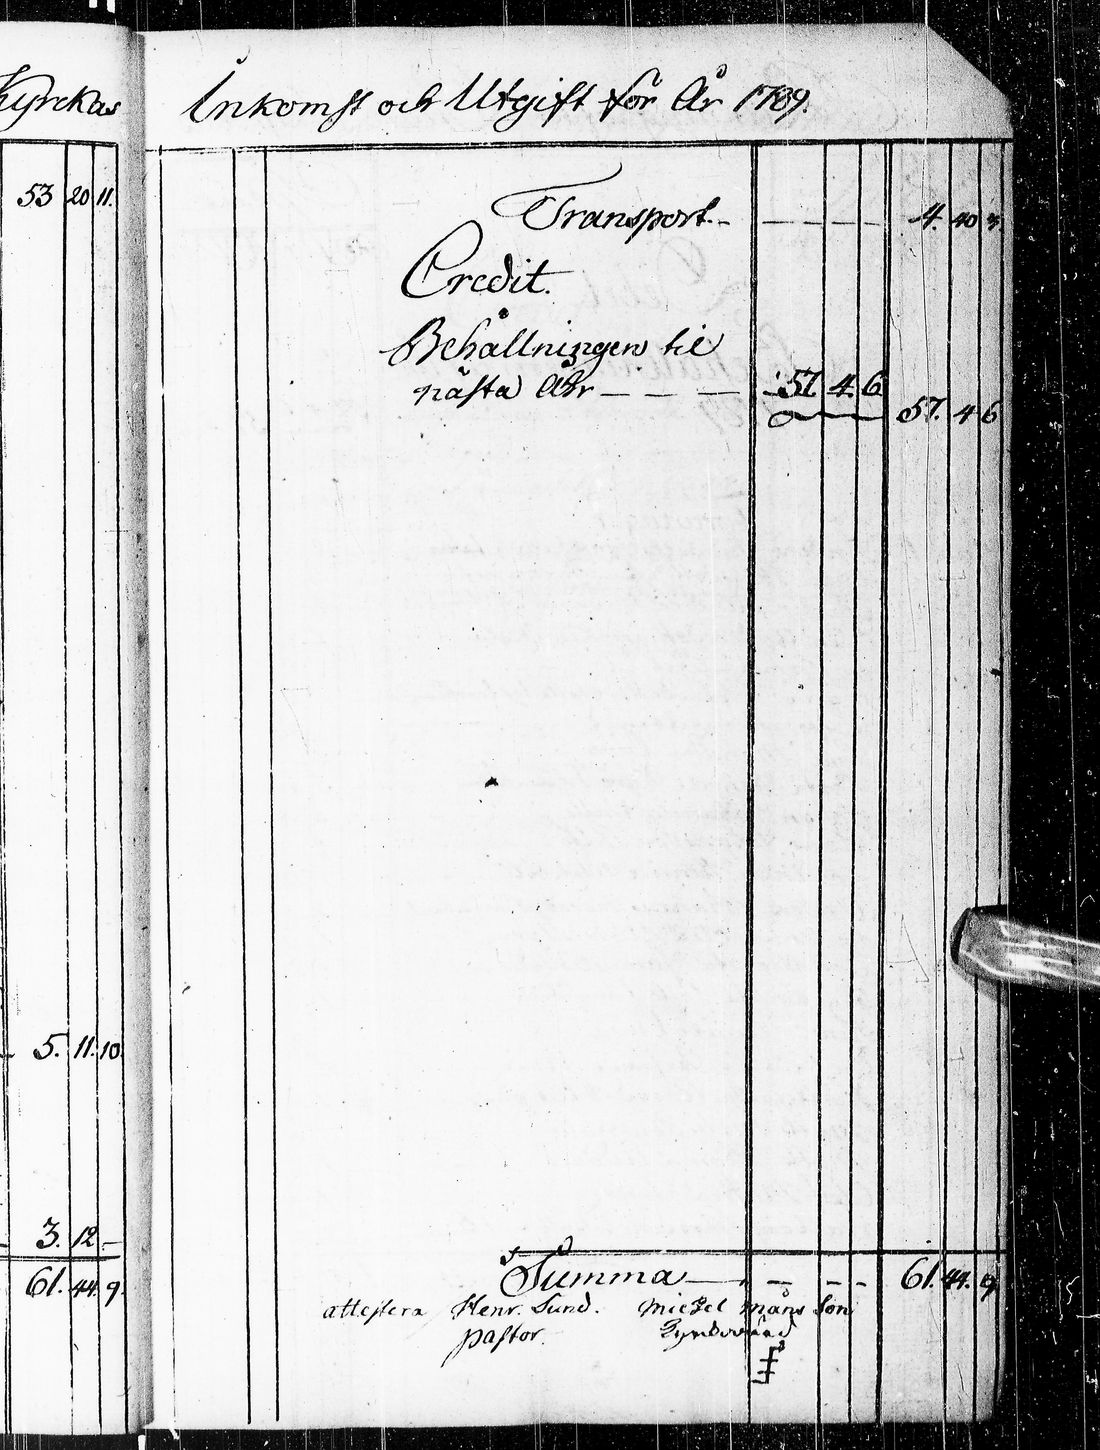 Kyrckas
53 20 11.
5. 11. 10
3. 12 –
61. 44. 9.
Inkomst och Utgift för År 1789.
Transport. – – – – 4. 40 3
Credit.
Behållningen til
nästa Åhr – – – 57 4. 6
57. 4 6
Summa – – – – 61. 44. 9
attestera Henr. Lund. Mickel Måns Son
pastor.